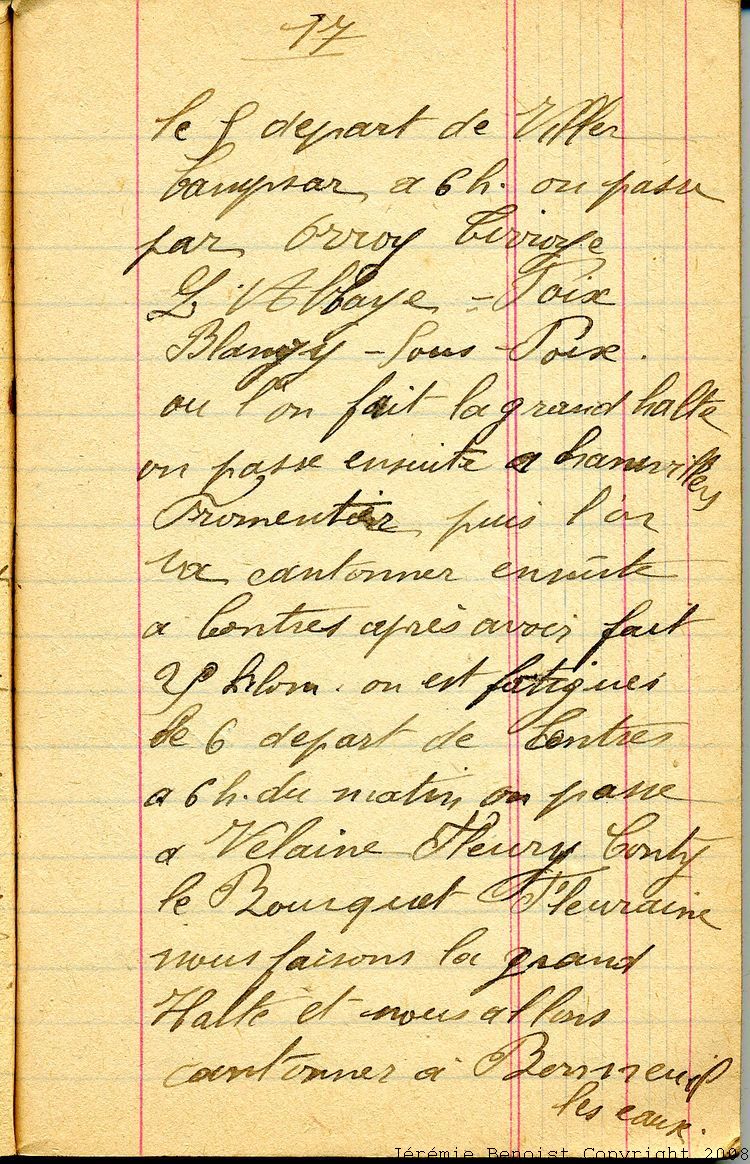 17
le 5 depart de Viller
Campsar a 6 h. on passe
par Orroy Cirroye
L'Abbaye - Poix
Blangy - Sous - Poix.
ou l'on fait la grand halte
on passe ensuite a hanvillers
Fromentier puis l'on
va cantonner ensuite
a Contres après avoir fait
25 kilom. on est fatigues
Le 6 depart de Contres
a 6 h. du matin, on passe
a Velaine Fleury Conty
le Bousquet Fleuraine
nous faisons la grand
Halte et nous allons
cantonner à Bonneuil
les eaux.
Jérémie Benoist Copyright 2008